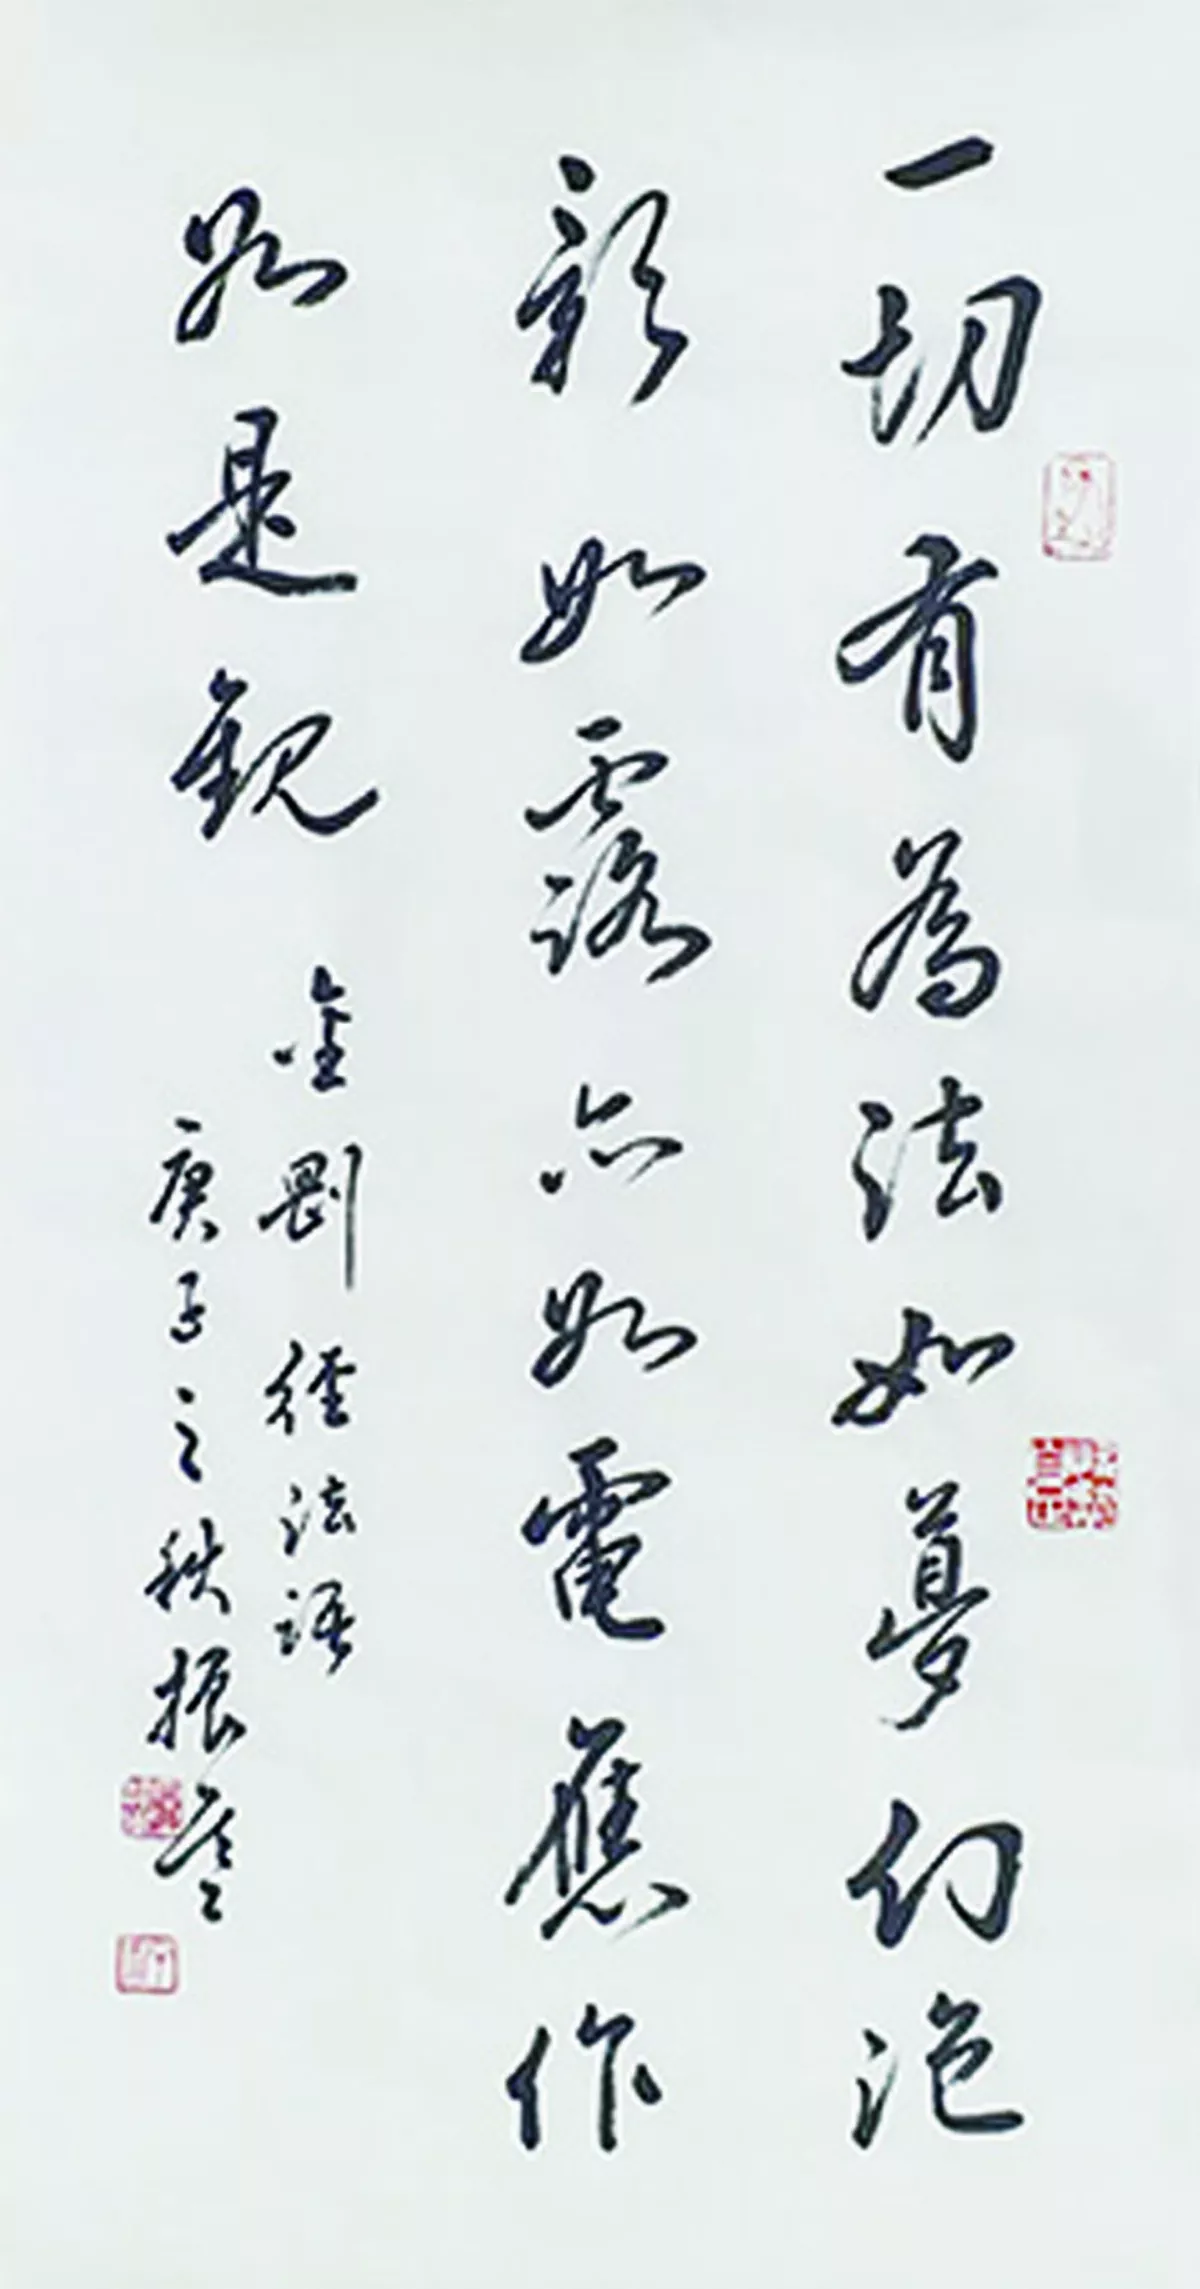 一切有為法如夢幻泡
影如露亦如電應作
如是觀
金剛経法語
庚子之秋振